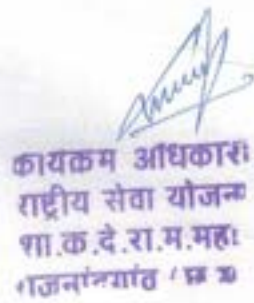 कार्यक्रम अधिकारी
राष्ट्रीय सेवा योजना
शा.क.दे.रा.म.महा
राजनांदगांव